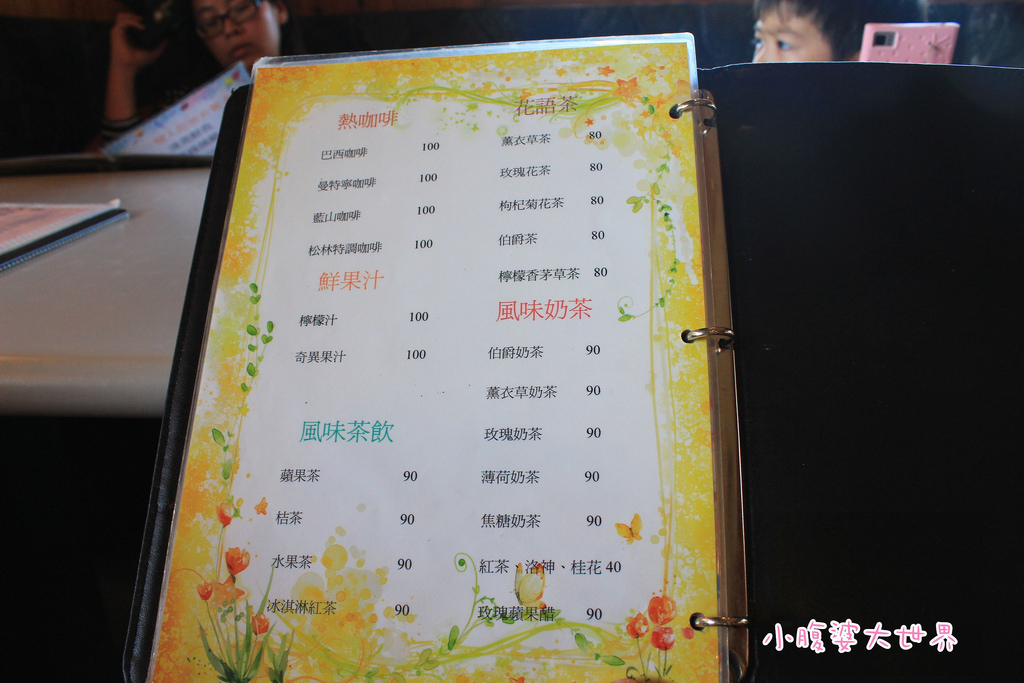 熱咖啡
巴西咖啡 100
曼特寧咖啡 100
藍山咖啡 100
松林特調咖啡 100
鮮果汁
檸檬汁 100
奇異果汁 100
風味茶飲
蘋果茶 90
桔茶 90
水果茶 90
冰淇淋紅茶 90
花語茶
薰衣草茶 80
玫瑰花茶 80
枸杞菊花茶 80
伯爵茶 80
檸檬香茅草茶 80
風味奶茶
伯爵奶茶 90
薰衣草奶茶 90
玫瑰奶茶 90
薄荷奶茶 90
焦糖奶茶 90
紅茶、洛神、桂花 40
玫瑰蘋果醋 90
小腹婆大世界